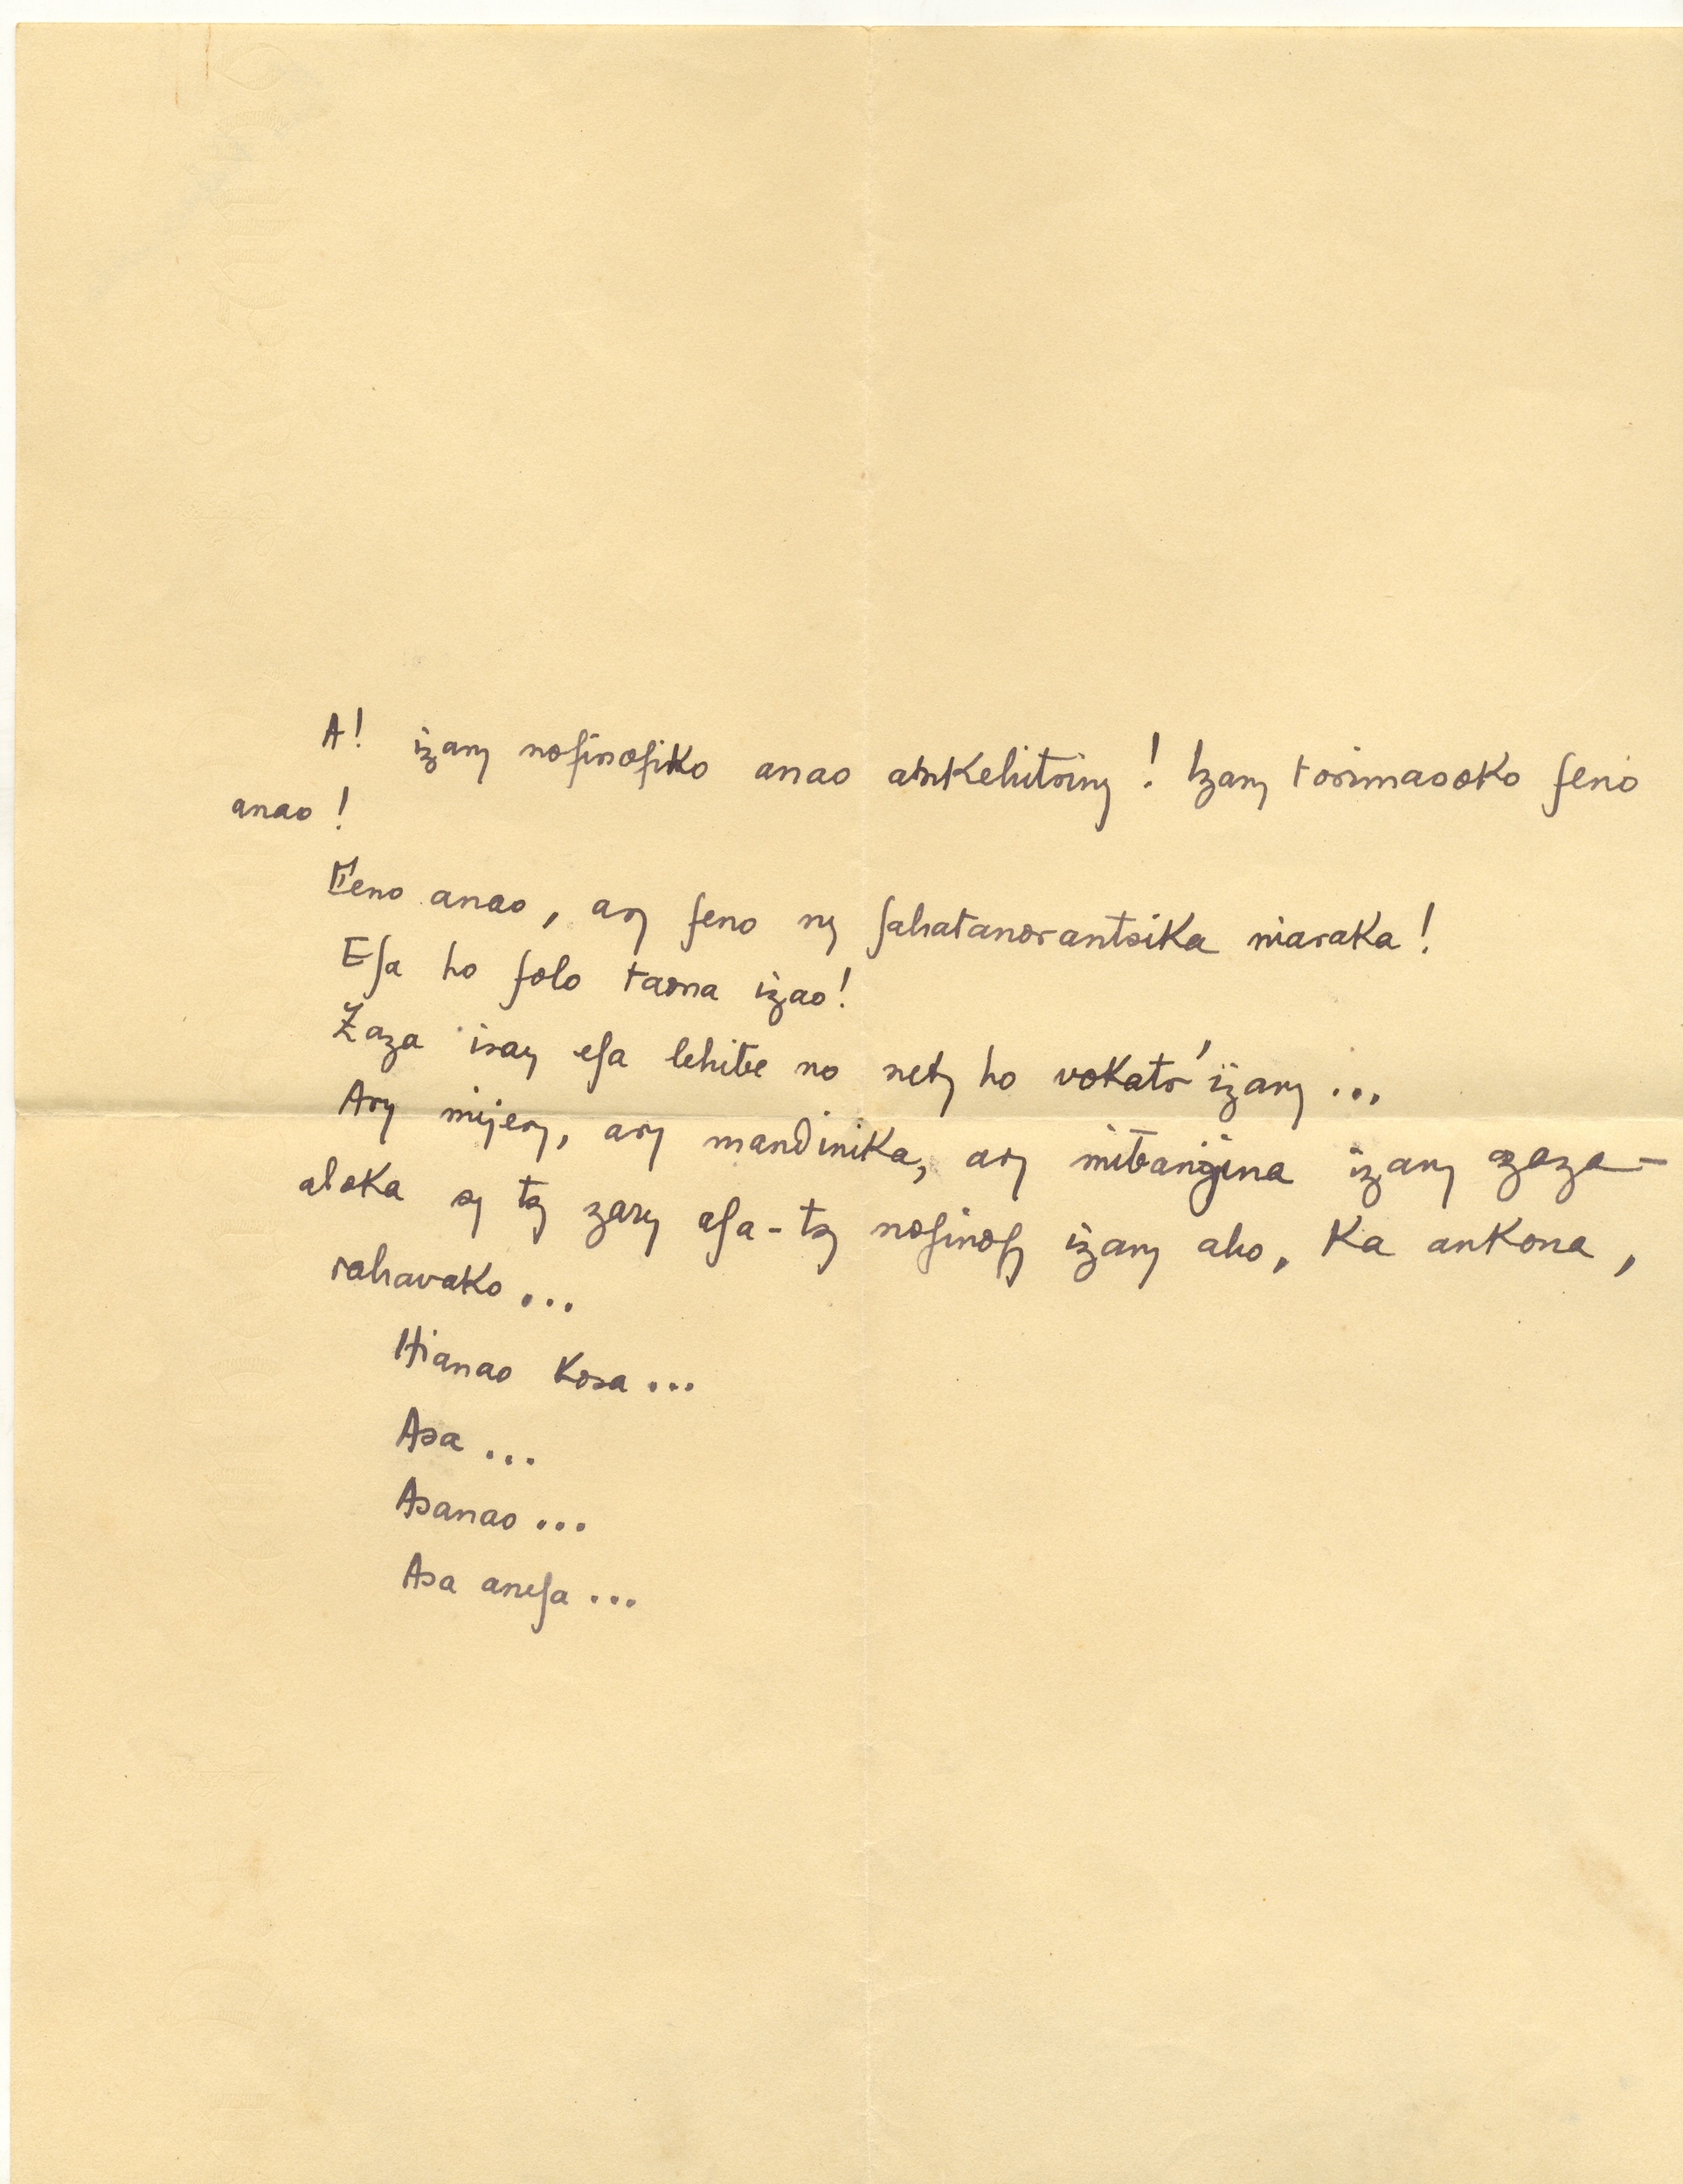 A! izany nofinofiko anao ankehitriny! Izany torimasoko feno
anao!
Feno anao, ary feno ny fahatanorantsika miaraka!
Efa ho folo taona izao!
Zaza iray efa lehibe no nety ho vokatr'izany...
Ary mijery, ary mandinika, ary mibanjina izany zaza-
aloka sy tsy zary afa-tsy nofinofy izany aho, ka ankona,
rahavako...
Hianao kosa...
Asa...
Asanao...
Asa anefa...